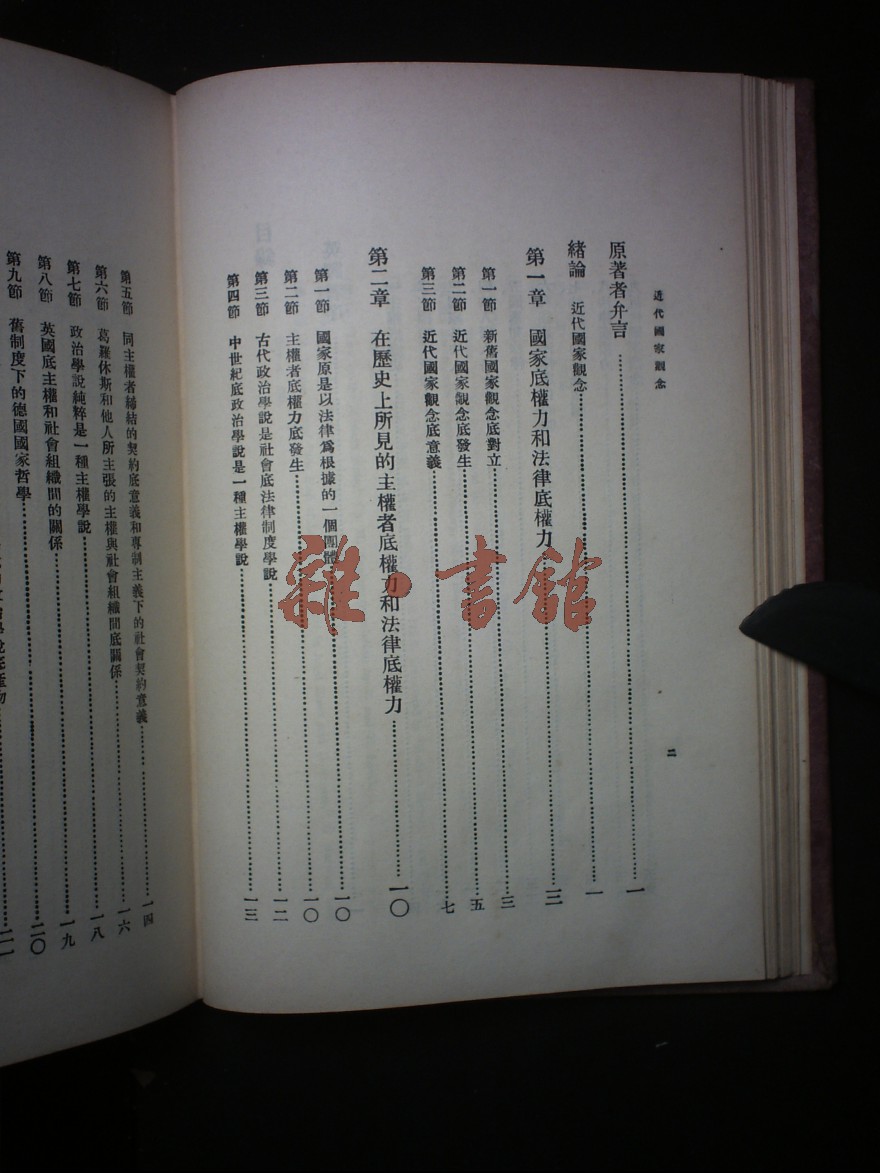 近代國家觀念
二
原著者弁言 一
緒論 近代國家觀念 一
第一章 國家底權力和法律底權力 三
第一節 新舊國家觀念底對立 三
第二節 近代國家觀念底發生 五
第三節 近代國家觀念底意義 七
第二章 在歷史上所見的主權者底權力和法律底權力 一〇
第一節 國家原是以法律爲根據的一個團體 一〇
第二節 主權者底權力底發生 一〇
第三節 古代政治學說是社會底法律制度學說 一二
第四節 中世紀底政治學說是一種主權學說 一三
第五節 同主權者締結的契約底意義和專制主義下的社會契約意義 一四
第六節 葛羅休斯和他人所主張的主權與社會組織間底關係 一六
第七節 政治學說純粹是一種主權學說 一八
第八節 英國底主權和社會組織間的關係 一九
第九節 舊制度下的德國國家哲學 二〇
二一
雜·書館